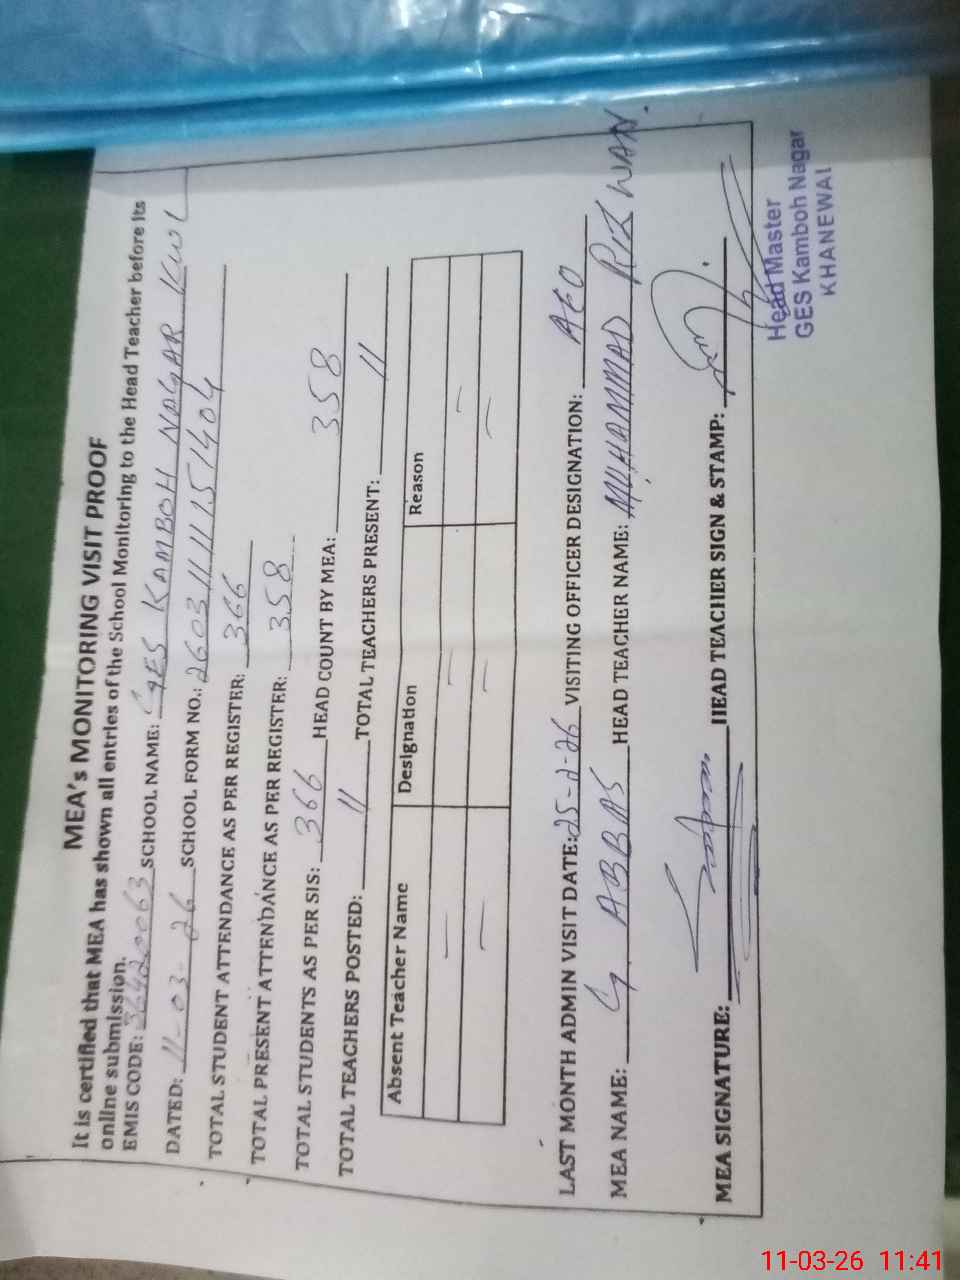 MEA's MONITORING VISIT PROOF
It is certified that MEA has shown all entries of the School Monitoring to the Head Teacher before its
online submission.
EMIS CODE: 36420063 SCHOOL NAME: GES KAMBOH NAGAR KWL
DATED: 11-03-26 SCHOOL FORM NO.:
TOTAL STUDENT ATTENDANCE AS PER REGISTER: 366
TOTAL PRESENT ATTENDANCE AS PER REGISTER: 358
TOTAL STUDENTS AS PER SIS: 366 HEAD COUNT BY MEA: 358
TOTAL TEACHERS POSTED: 11 TOTAL TEACHERS PRESENT: 11
Absent Teacher Name Designation Reason
LAST MONTH ADMIN VISIT DATE: 25-2-26 VISITING OFFICER DESIGNATION: AEO
MEA NAME: G. ABBAS HEAD TEACHER NAME: MUHAMMAD RIZWAN.
MEA SIGNATURE: HEAD TEACHER SIGN & STAMP:
Head Master
GES Kamboh Nagar
KHANEWAL
11-03-26 11:41